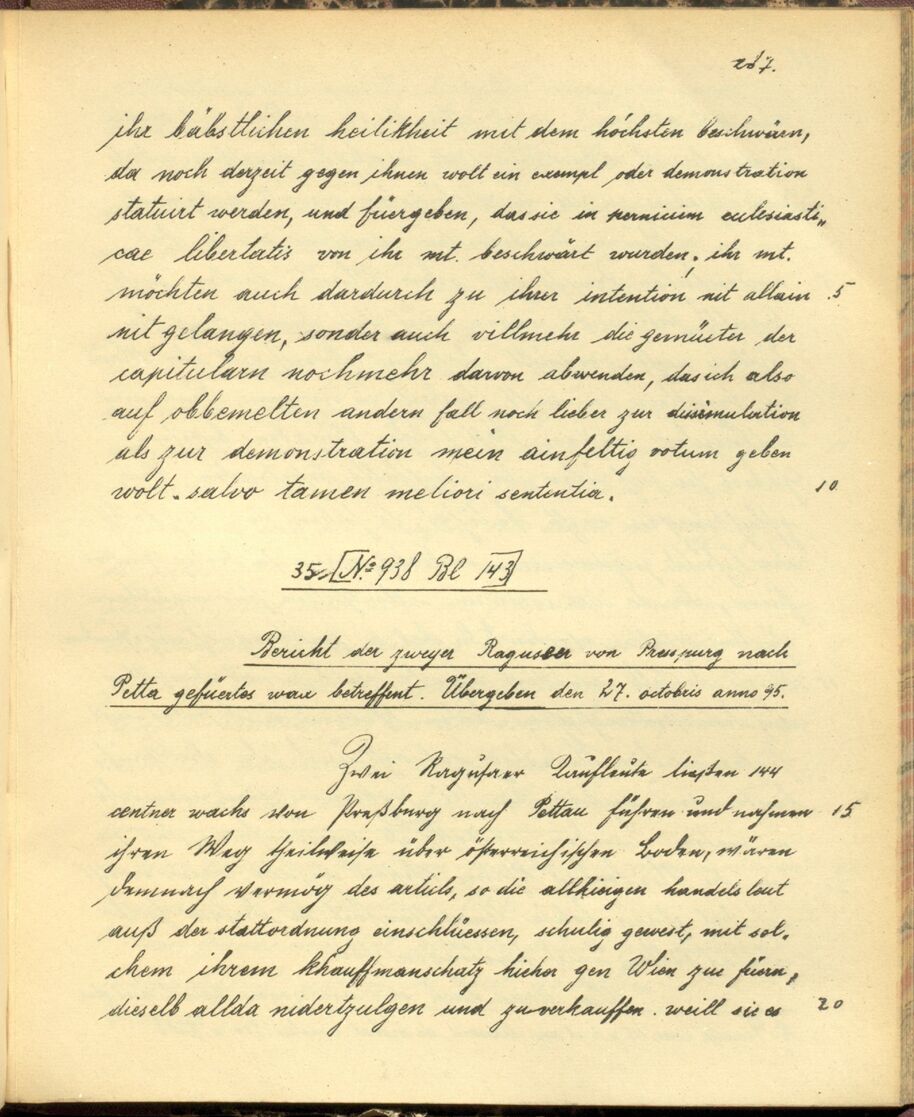 287.
ihr bäbstlichen heilikheit mit dem höchsten beschwärn,
da noch derzeit gegen ihnen wolt ein exempl oder demonstration
statuirt werden, und füergeben, das sie in pernicium eclesiasti„
cae libertatis von ihr mt. beschwärt wurden, ihr mt.
möchten auch dardurch zu ihrer intention nit allain 5
nit gelangen, sonder auch villmehr die gemüeter der
capitularn nochmehr darvon abwenden, das ich also
auf obbemelten andern fall noch lieber zur dissimulation
als zur demonstration mein ainfeltig votum geben
wolt. salvo tamen meliori sententia. 10
35 [No 938 Bl 143]
Bericht der zweyer Raguseer von Presspurg nach
Petta gefüertes wax betreffent. Übergeben den 27. octobris anno 95.
Zwei Ragusaer Kaufleute ließen 144
centner wachs von Preßburg nach Pettau führen und nahmen 15
ihren Weg theilweise über österreichischen Boden, wären
demnach vermög des articls, so die allhieigen handelsleut
auß der stattordnung einschlüessen, schulig gewest, mit sol-
chem ihrem khauffmanschatz hieher gen Wien zue füern,
dieselb allda nidertzulgen und zu verkauffen. weill sie es 20